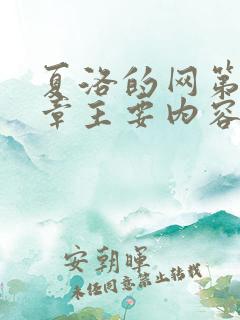 夏洛的网第
章主要内容
安朝晖
未经同意禁止转载